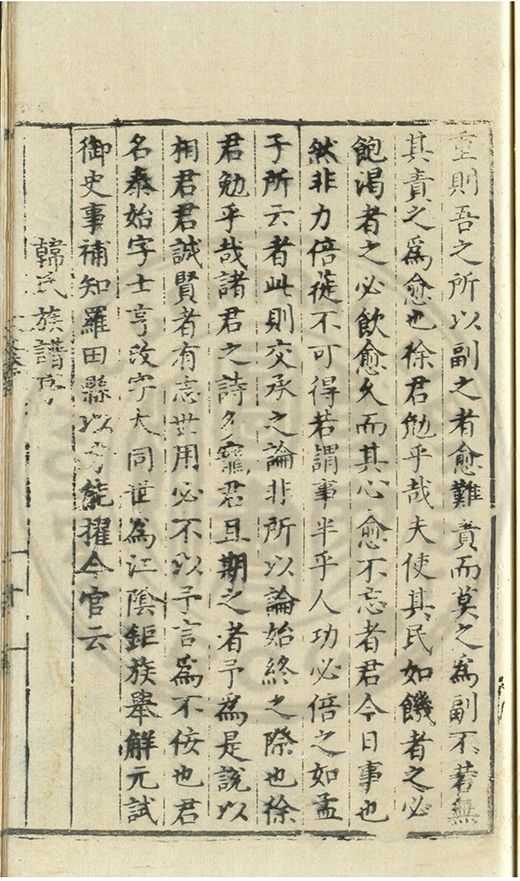 重則吾之所以副之者愈難責而莫之為副不若無
其責之為愈也徐君勉乎哉夫使其民如饑者之必
飽渴者之必飲愈久而其心愈不忘者君今日事也
然非力倍蓰不可得若謂事半乎人功必倍之如孟
子所云者此則交承之論非所以論始終之際也徐
君勉乎哉諸君之詩多寵君且期之者予為是說以
相君君誠賢者有志世用必不以予言為不佞也君
名泰始字士亨改字大同世為江陰鉅族舉解元試
御史事補知羅田縣以才能擢今官云
韓氏族譜序